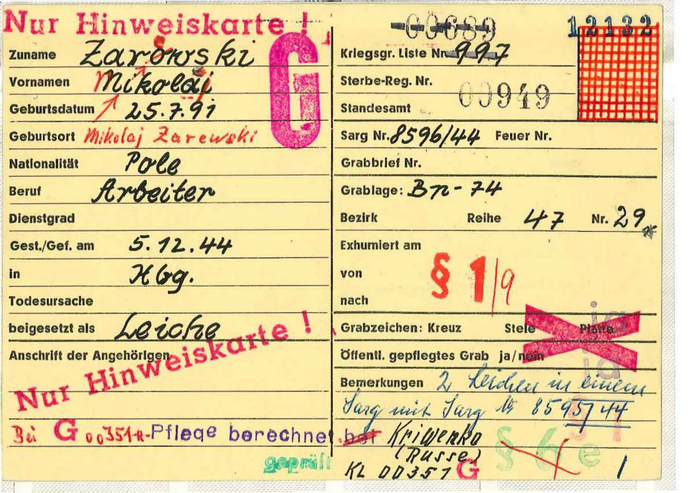 Nur Hinweiskarte !
Zuname Zarowski
Vornamen Mikolaj
Geburtsdatum 25.7.91
Geburtsort Mikolaj Zarewski
Nationalität Pole
Beruf Arbeiter
Dienstgrad
Gest./Gef. am 5.12.44
in Hbg.
Todesursache
beigesetzt als Leiche
Anschrift der Angehörigen
Nur Hinweiskarte !
Bei G 00351-R-Pflege berechnet bei
geprüft
G
00689 12132
Kriegsgr. Liste Nr. 997
Sterbe-Reg. Nr.
00949
Standesamt
Sarg Nr. 8596/44 Feuer Nr.
Grabbrief Nr.
Grablage: Bn-74
Bezirk Reihe 47 Nr. 29
Exhumiert am
von
§ 1/9
nach
Grabzeichen: Kreuz Stele Platte
ja
Öffentl. gepflegtes Grab ja/nein
ja
Bemerkungen 2 Leichen in einem
Sarg mit Sarg № 8595/44
Kriwenko
(Russe)
KL 00351 G
§ 6 e 1